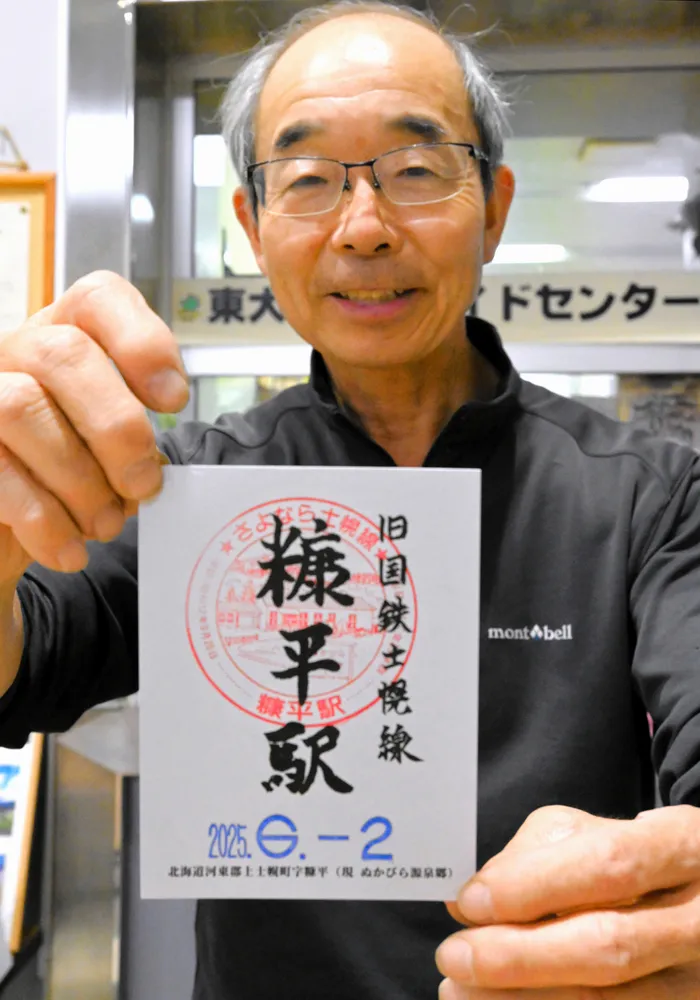 東大
イドセンター
旧国鉄士幌線
糠平駅
★さよなら士幌線★
糠平駅
2025.6.-2
北海道河東郡上士幌町字糠平(現 ぬかびら源泉郷)
mont♠bell